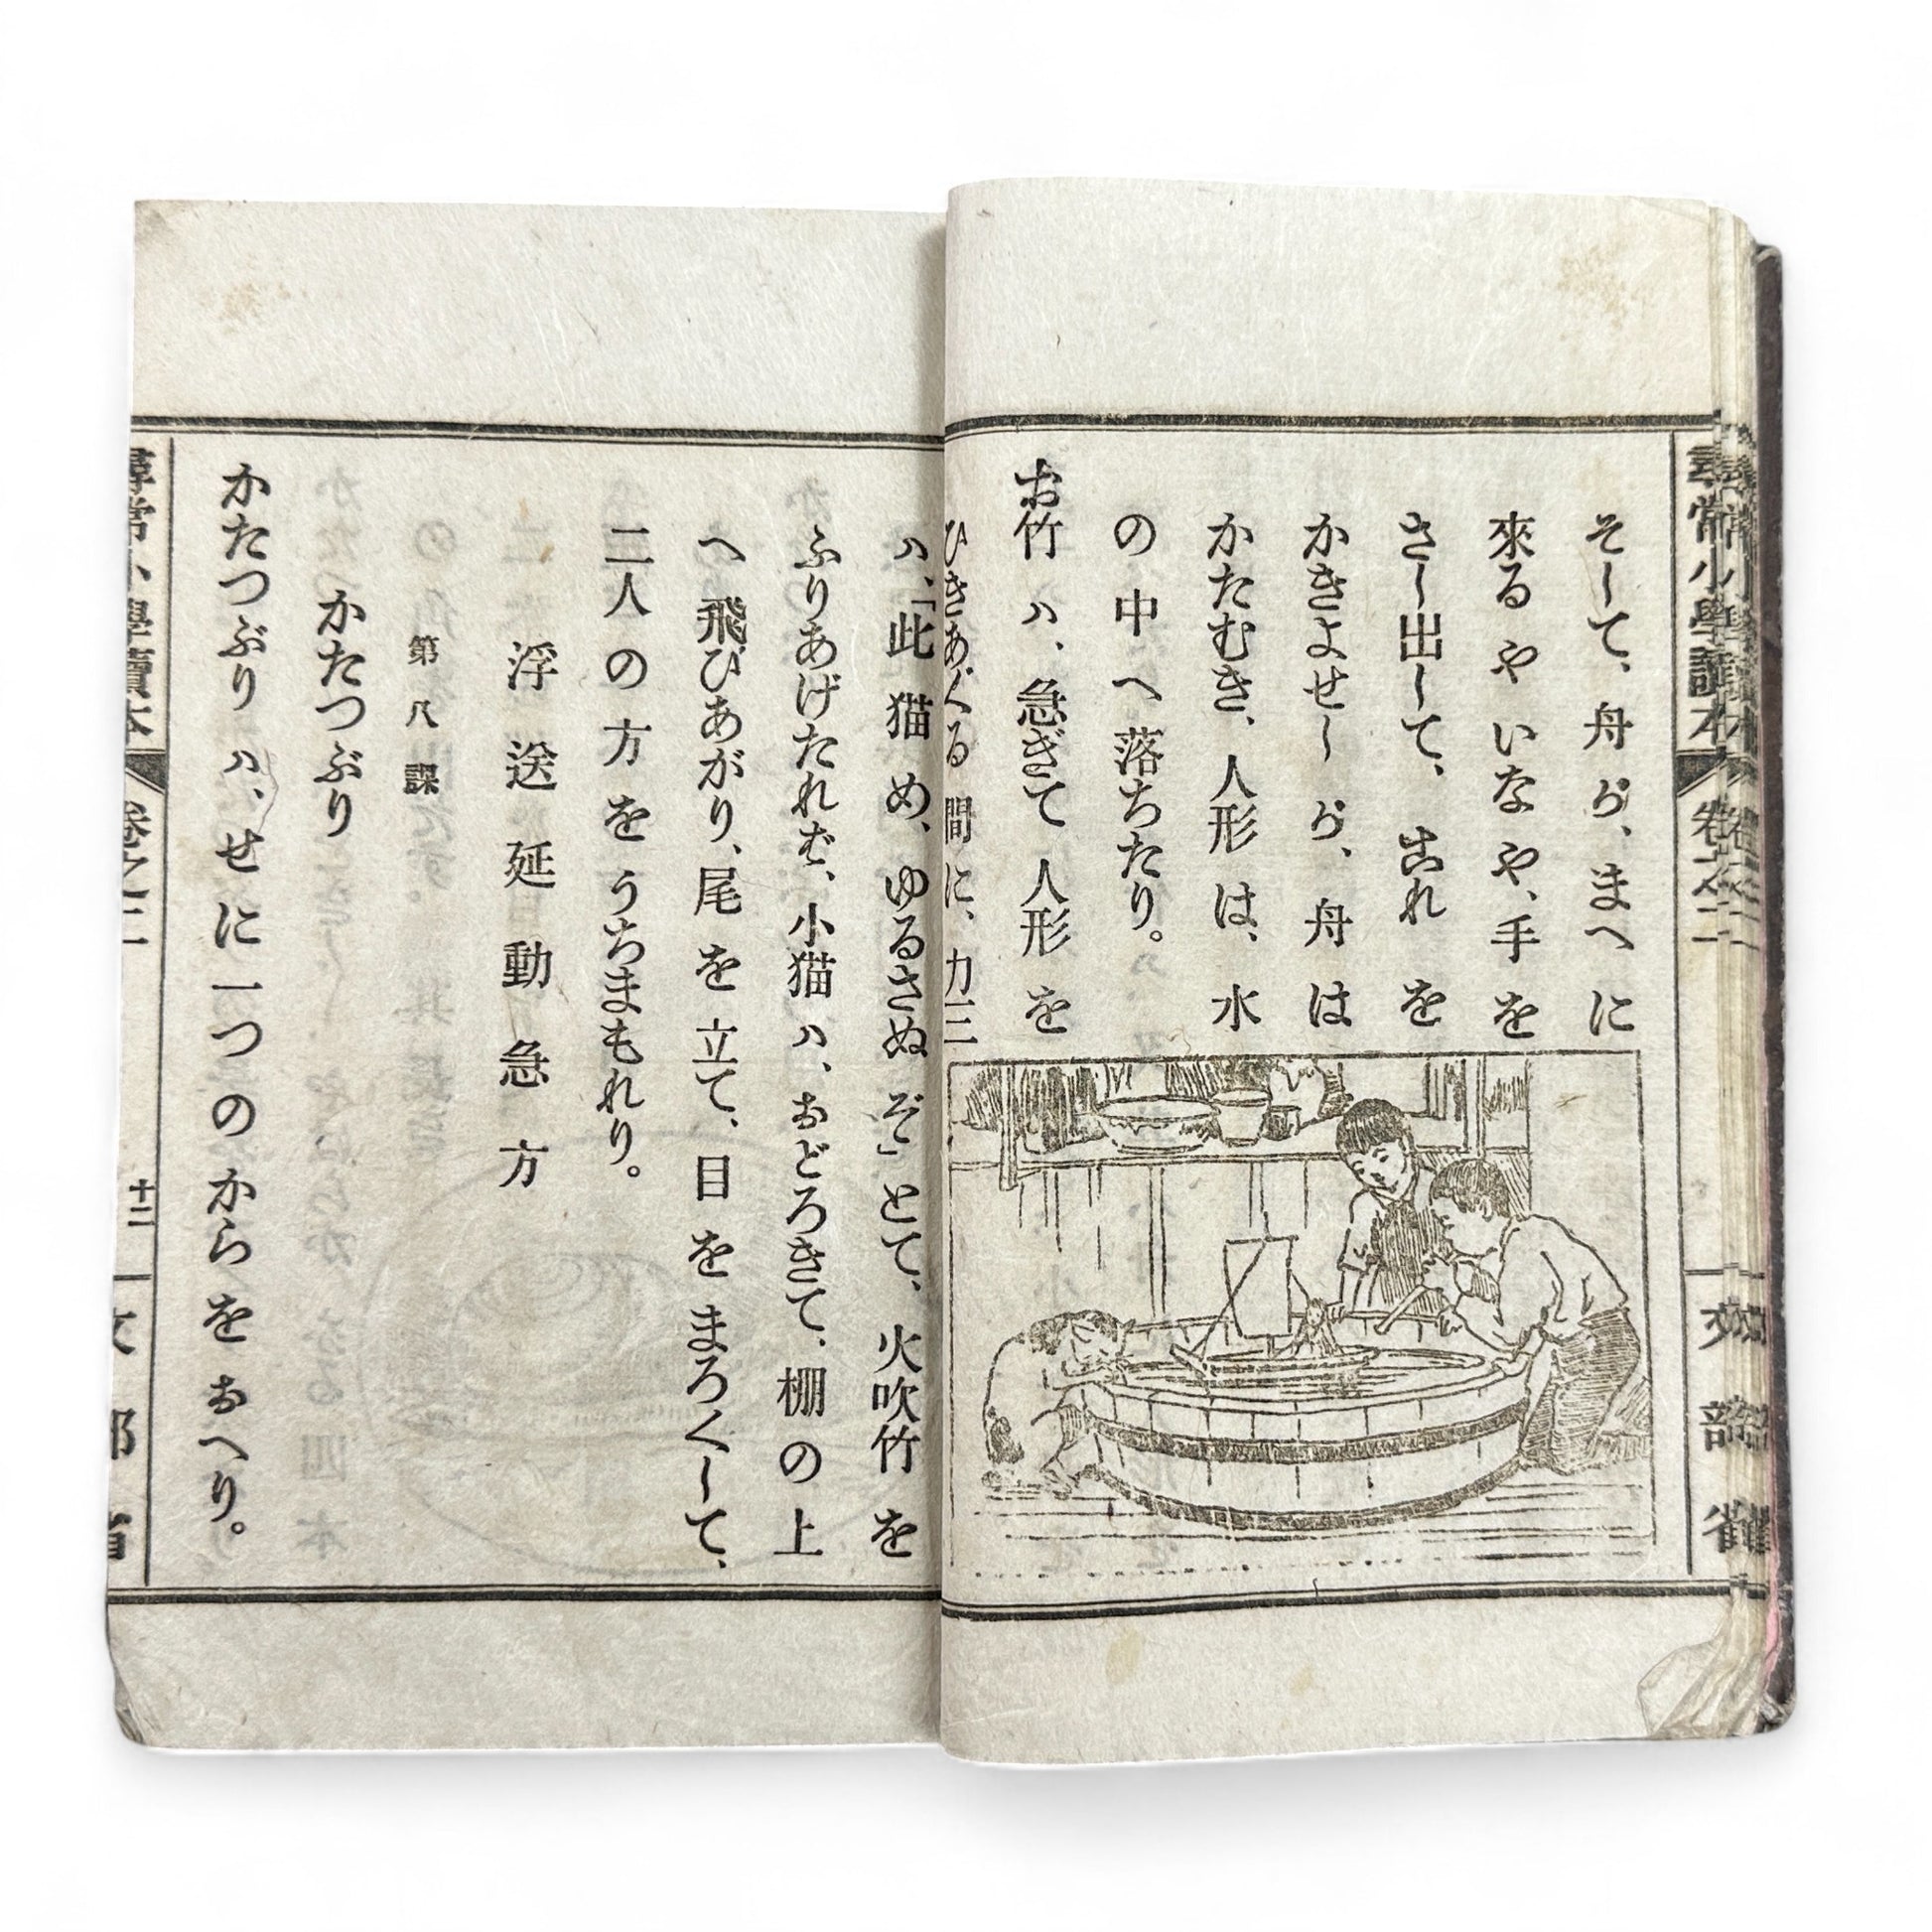 尋常小學讀本 卷之二 文部省
そして、舟が、まへに
來るやいなや、手を
さし出して、これを
かきよせしが、舟は
かたむき、人形は、水
の中へ落ちたり。
お竹ハ、急ぎて人形を
ひきあぐる間に、力三
ハ、「此猫め、ゆるさぬぞ」とて、火吹竹を
ふりあげたれば、小猫ハ、おどろきて、棚の上
へ飛びあがり、尾を立て、目をまろくして、
二人の方をうちまもれり。
浮送延動急方
第八課
かたつぶり
かたつぶりハ、せに一つのからをおへり。
尋常小學讀本 卷之二 十二 文部省